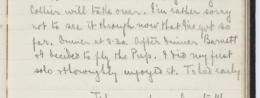 Collier will take over. I'm rather sorry
not to see it through now that I've got so
far. Dinner at 8-30. After dinner Barnett
& I decided to fly the Pup. I did my first
solo & thoroughly enjoyed it. To bed early